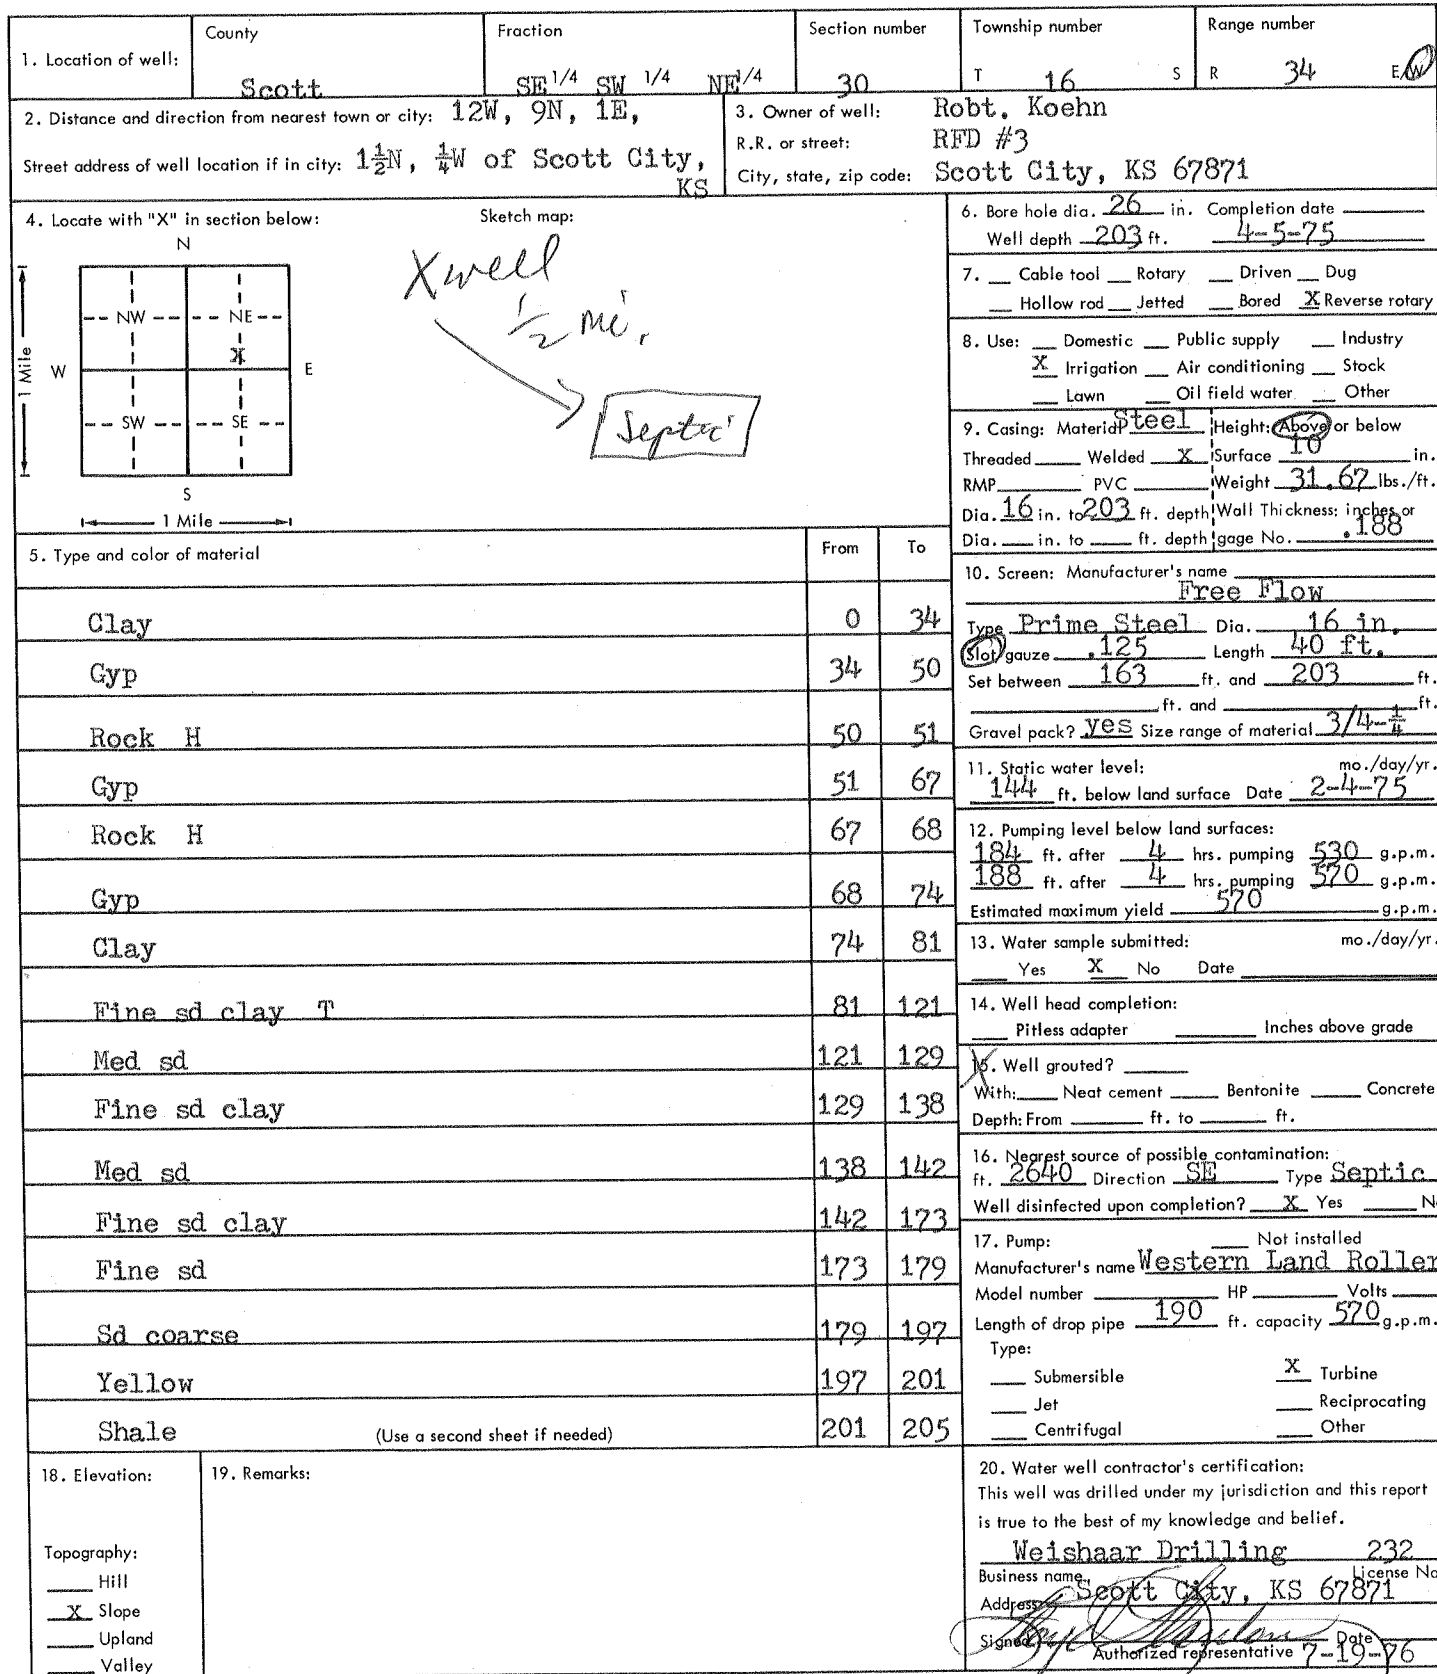 1. Location of well: County Scott Fraction SE 1/4 SW 1/4 NE 1/4 Section number 30 Township number T 16 S Range number R 34 E/W
2. Distance and direction from nearest town or city: 12W, 9N, 1E,
Street address of well location if in city: 1½N, ¼W of Scott City, KS
3. Owner of well: Robt. Koehn
R.R. or street: RFD #3
City, state, zip code: Scott City, KS 67871
4. Locate with "X" in section below:
N
NW NE
X
W E
SW SE
S
1 Mile
1 Mile
Sketch map:
X well
1/2 mi.
Septic
5. Type and color of material From To
Clay 0 34
Gyp 34 50
Rock H 50 51
Gyp 51 67
Rock H 67 68
Gyp 68 74
Clay 74 81
Fine sd clay T 81 121
Med sd 121 129
Fine sd clay 129 138
Med sd 138 142
Fine sd clay 142 173
Fine sd 173 179
Sd coarse 179 197
Yellow 197 201
Shale (Use a second sheet if needed) 201 205
6. Bore hole dia. 26 in. Completion date
Well depth 203 ft. 4-5-75
7. __ Cable tool __ Rotary __ Driven __ Dug
__ Hollow rod __ Jetted __ Bored X Reverse rotary
8. Use: __ Domestic __ Public supply __ Industry
X Irrigation __ Air conditioning __ Stock
__ Lawn __ Oil field water __ Other
9. Casing: Material Steel Height: Above or below
Threaded __ Welded X Surface 10 in.
RMP __ PVC __ Weight 31.67 lbs./ft.
Dia. 16 in. to 203 ft. depth Wall Thickness: inches or
Dia. __ in. to __ ft. depth gage No. .188
10. Screen: Manufacturer's name
Free Flow
Type Prime Steel Dia. 16 in.
Slot/gauze .125 Length 40 ft.
Set between 163 ft. and 203 ft.
__ ft. and __ ft.
Gravel pack? yes Size range of material 3/4-¼
11. Static water level: mo./day/yr.
144 ft. below land surface Date 2-4-75
12. Pumping level below land surfaces:
184 ft. after 4 hrs. pumping 530 g.p.m.
188 ft. after 4 hrs. pumping 570 g.p.m.
Estimated maximum yield 570 g.p.m.
13. Water sample submitted: mo./day/yr.
__ Yes X No Date
14. Well head completion:
__ Pitless adapter __ Inches above grade
15. Well grouted?
With: __ Neat cement __ Bentonite __ Concrete
Depth: From __ ft. to __ ft.
16. Nearest source of possible contamination:
ft. 2640 Direction SE Type Septic
Well disinfected upon completion? X Yes __ N
17. Pump: __ Not installed
Manufacturer's name Western Land Roller
Model number __ HP __ Volts
Length of drop pipe 190 ft. capacity 570 g.p.m.
Type:
__ Submersible X Turbine
__ Jet __ Reciprocating
__ Centrifugal __ Other
18. Elevation:
Topography:
__ Hill
X Slope
__ Upland
__ Valley
19. Remarks:
20. Water well contractor's certification:
This well was drilled under my jurisdiction and this report
is true to the best of my knowledge and belief.
Weishaar Drilling 232
Business name License No
Address Scott City, KS 67871
Signed Date
Authorized representative 7-19-76